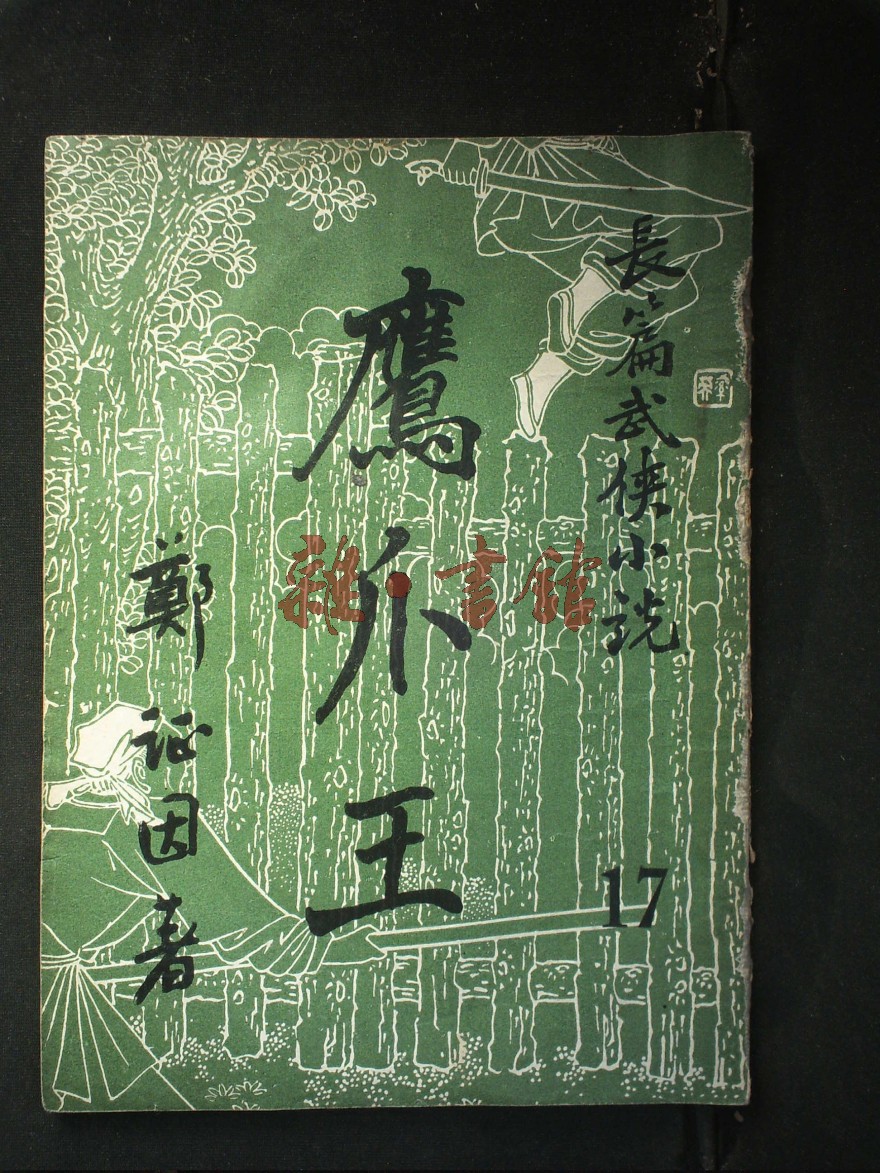 長篇武俠小説
鷹爪王
17
鄭証因著
雜·書館